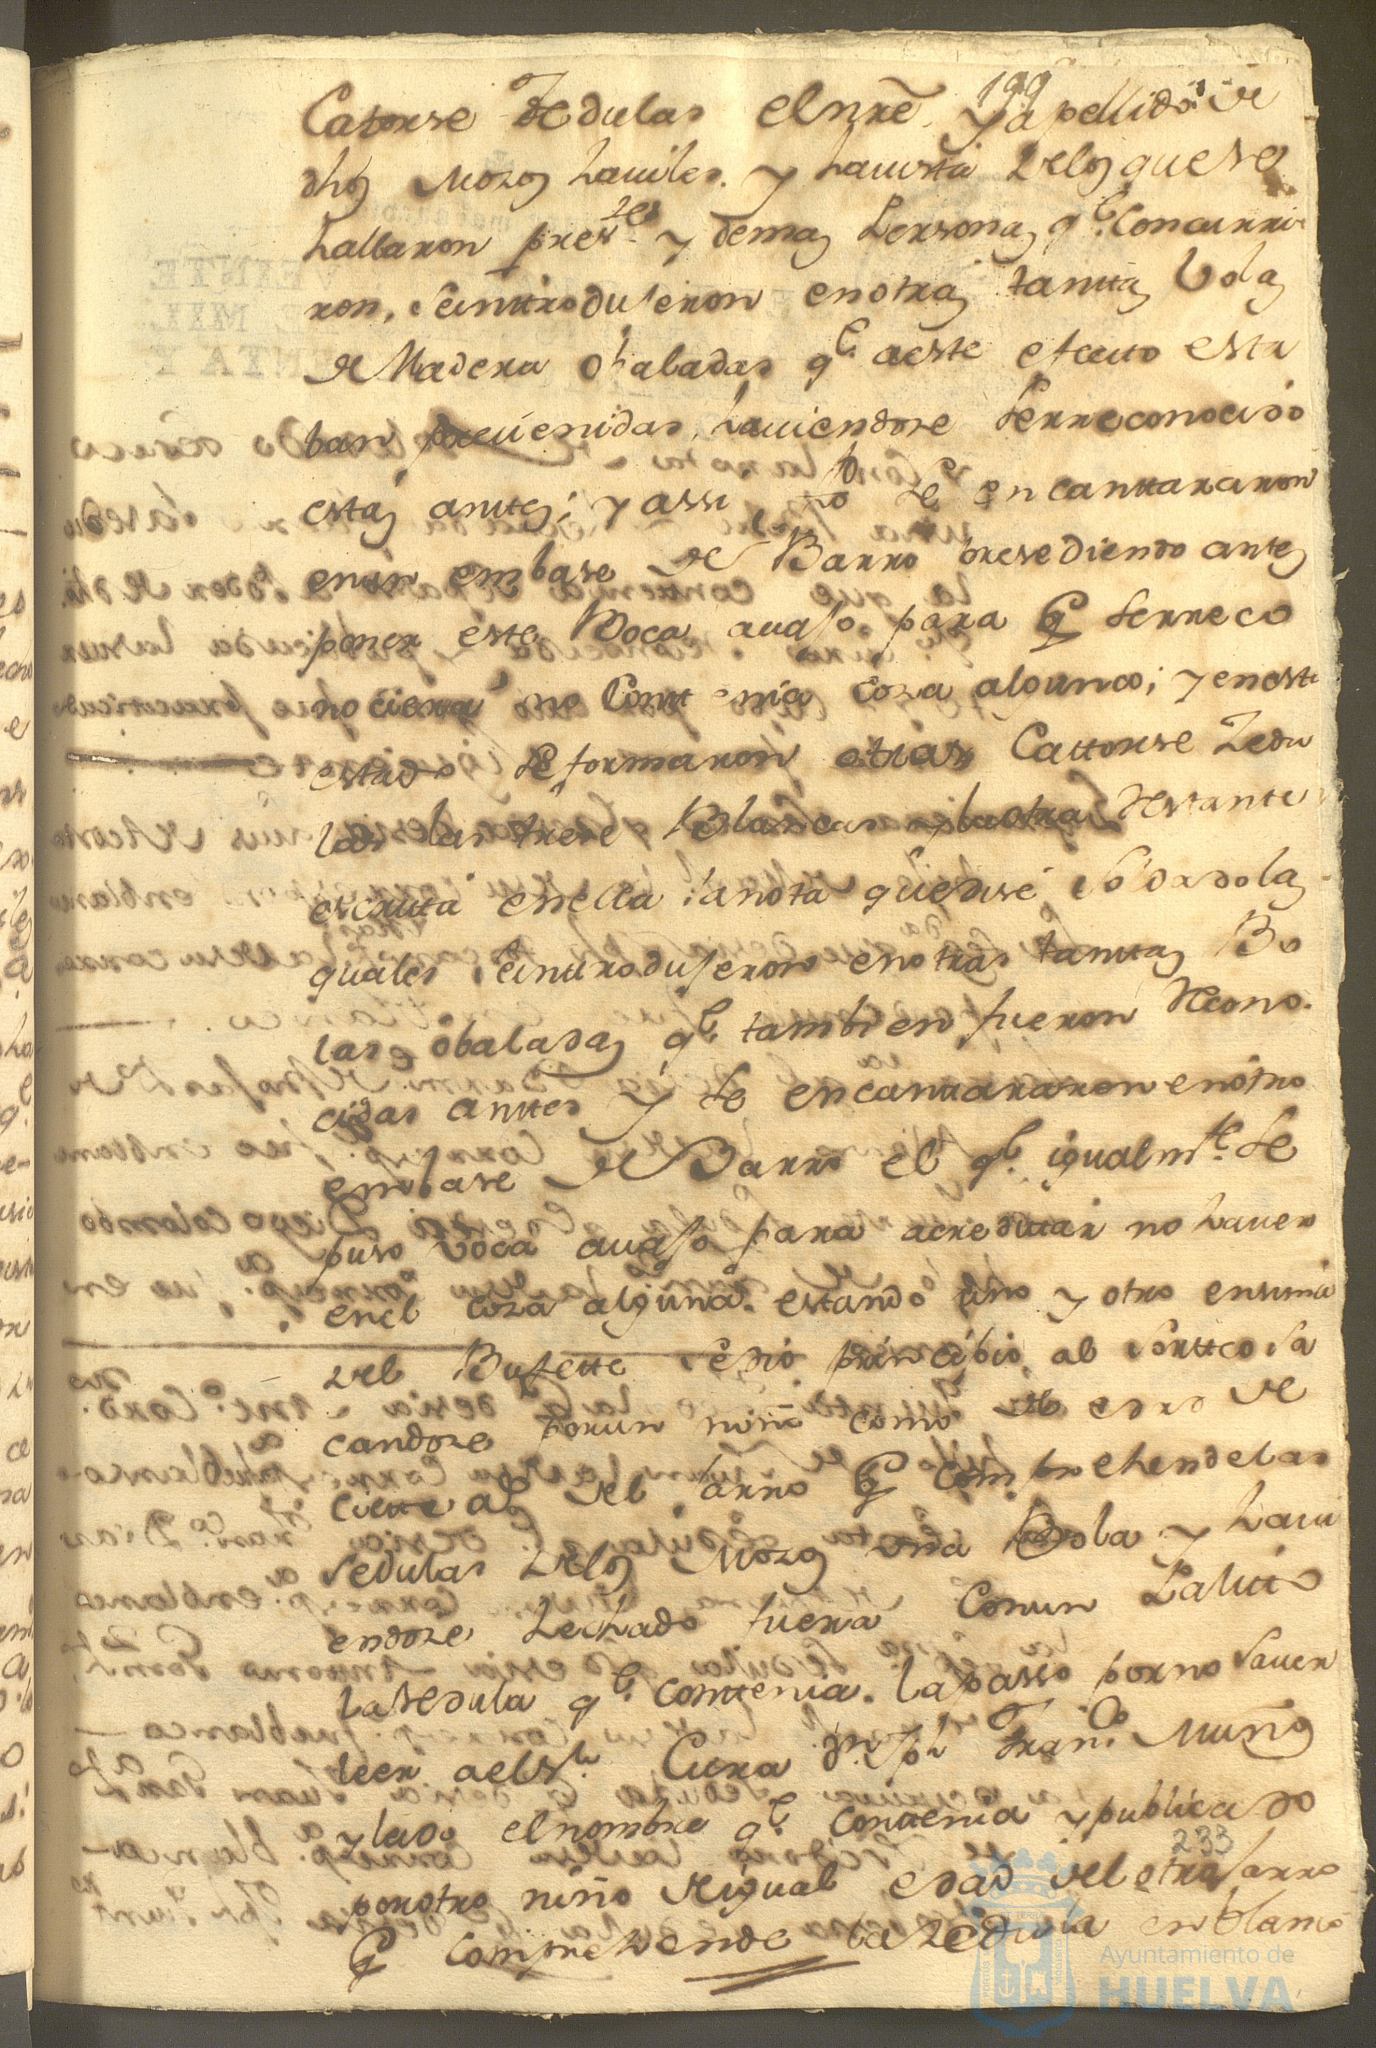 199
Catorse Zedulas el nre. y apellido de
dhos Mozos haviles. y havista delos que se
hallaron prestes y demas Personas q.e Concurrie
ron, se inttrodugeron en otras tanttas Volas
de Madera obaladas q.e a este efecto esta
ban prevenidas, haviendose Se rreconocido
estas anttes; y assi se encanttararon
en un embase de Barro presediendo antes
poner este Boca avajo para q Se rreco
nociera no Conttenia coza alguna; y en este
estado Se formaron otras Cattorse Zedu
las las trese Blancas y la otra Restante
escritta en ella la nota que dise Soldado las
quales se inttrodugeron en otras tanttas Bo
las obaladas q.e tambien fueron Recono
cidas anttes y Se encanttararon en otro
embase de Barro el q.e igualm.te Se
puso Voca avajo para acredittar no haver
en el coza alguna. estando uno y otro ensima
del Bufette se dio principio al Sortteo Sa
candose por un niño como de edad de
ciette a.s del Jarro q comprehende las
sedulas delos Mozos una Bola y havi
endose hechado fuera Con un Palitto
la sedula q.e conttenia. la passo por no Saver
leer a el S.r Cura D.n Jph Fran.co Muños
y leido el nombre q.e conttenia y publicado
por otro niño de igual edad del otro Jarro
q comprehende la zedula en blanco
233
Ayuntamiento de
HUELVA